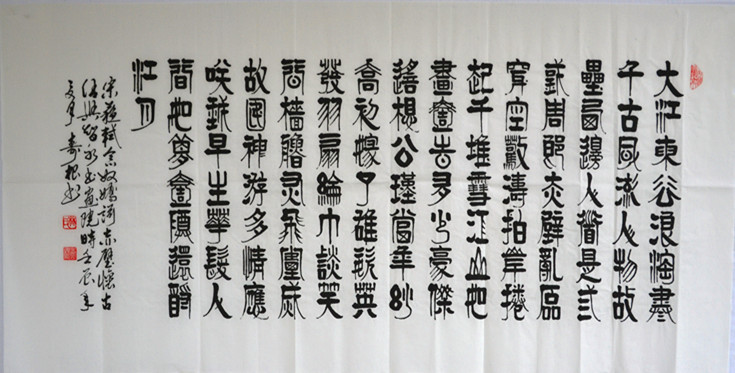 大江東去浪淘盡
千古風流人物故
壘西邊人道是三
國周郎赤壁亂石
穿空驚濤拍岸捲
起千堆雪江山如
畫壹時多少豪傑
遙想公瑾當年小
喬初嫁了雄姿英
發羽扇綸巾談笑
間檣艣灰飛煙滅
故國神游多情應
笑我早生華髮人
間如夢壹尊還酹
江月
宋蘇軾念奴嬌詞赤壁懷古
智永書畫院時壬辰年
夏月壽根書